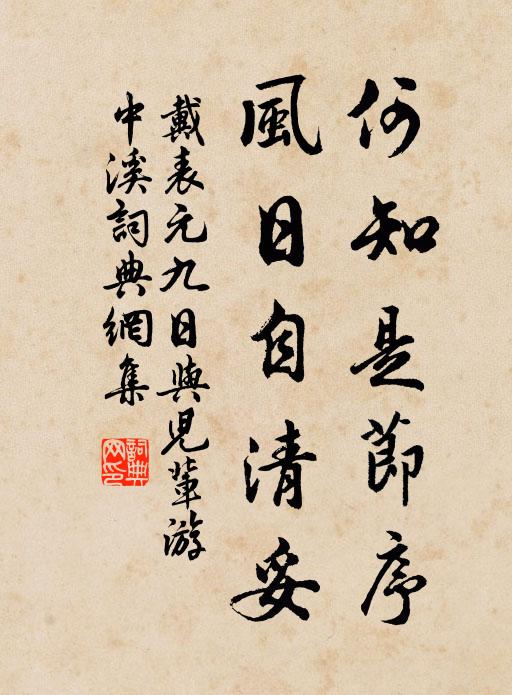 何知是節序
風日自清妥
戴表元九日與兒輩游
中溪詞典網集
詞典
网印